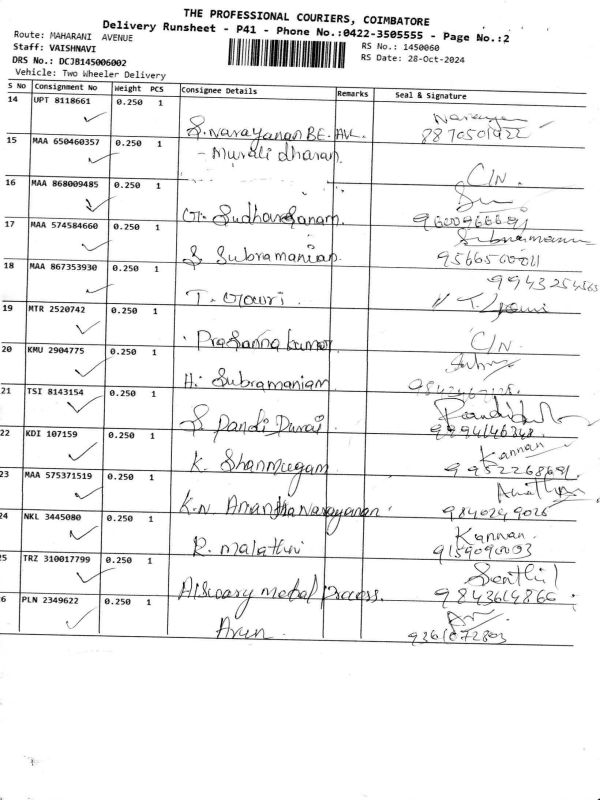 THE PROFESSIONAL COURIERS, COIMBATORE
Delivery Runsheet - P41 - Phone No.:0422-3505555 - Page No.:2
Route: MAHARANI AVENUE
RS No.: 1450060
Staff: VAISHNAVI
RS Date: 28-Oct-2024
DRS No.: DCJB145006002
Vehicle: Two Wheeler Delivery
S No Consignment No Weight PCS Consignee Details Remarks Seal & Signature
14 UPT 8118661 0.250 1 S. Narayanan BE. AVL. Narayan
8870501922
15 MAA 650460357 0.250 1 - Murali dharan C/N.
16 MAA 868009485 0.250 1 G. Sudharsanam.
17 MAA 574584660 0.250 1 S Subramanian Subramanian
9566500011
18 MAA 867353930 0.250 1 T. Gowri 9943254563
19 MTR 2520742 0.250 1 Prasanna kumar C/N.
20 KMU 2904775 0.250 1 H. Subramaniam
21 TSI 8143154 0.250 1 S. Pandi Durai
9894146348.
22 KDI 107159 0.250 1 K. Shanmugam Kannan
9952268691.
23 MAA 575371519 0.250 1 K.N. Anantha Narayanan.
9840249026
24 NKL 3445080 0.250 1 R. Malathi Kannan.
9159090003
25 TRZ 310017799 0.250 1 Aiswary metal process. Senthil
9843614866
26 PLN 2349622 0.250 1 Arun.
9361072803